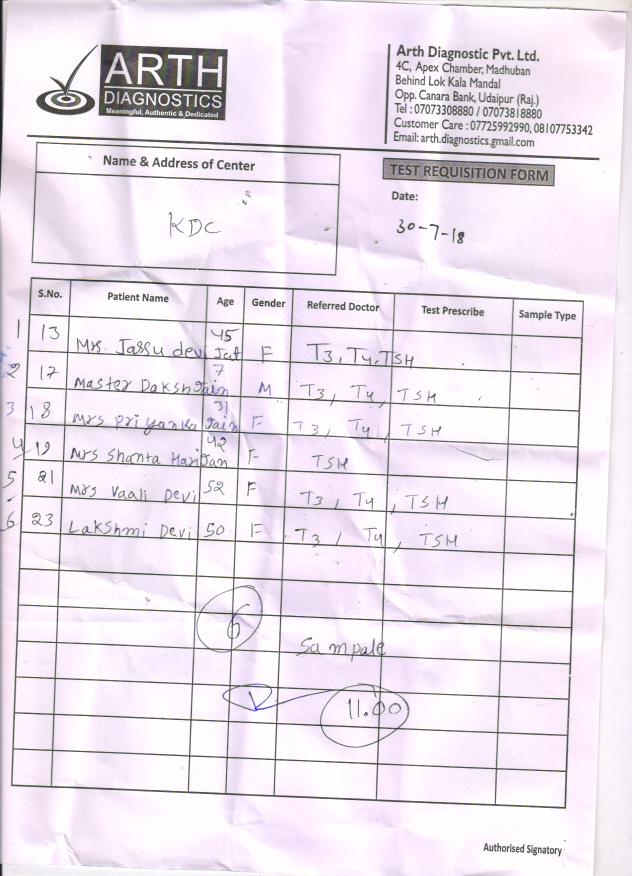 ARTH
DIAGNOSTICS
Meaningful, Authentic & Dedicated
Arth Diagnostic Pvt. Ltd.
4C, Apex Chamber, Madhuban
Behind Lok Kala Mandal
Opp. Canara Bank, Udaipur (Raj.)
Tel : 07073308880 / 07073818880
Customer Care : 07725992990, 08107753342
Email: arth.diagnostics.gmail.com
Name & Address of Center
KDC
TEST REQUISITION FORM
Date:
30-7-18
S.No. Patient Name Age Gender Referred Doctor Test Prescribe Sample Type
1 13 Mrs. Jassu devi Jat 45 F T3, T4, TSH
2 17 Master Daksh Jain 7 M T3, T4, TSH
3 18 Mrs Priyanka Jain 31 F T3, T4, TSH
4 19 Mrs Shanta Harijan 42 F TSH
5 21 Mrs Vaali Devi 52 F T3, T4, TSH
6 23 Lakshmi Devi 50 F T3, T4, TSH
6 Sampale
11.00
Authorised Signatory